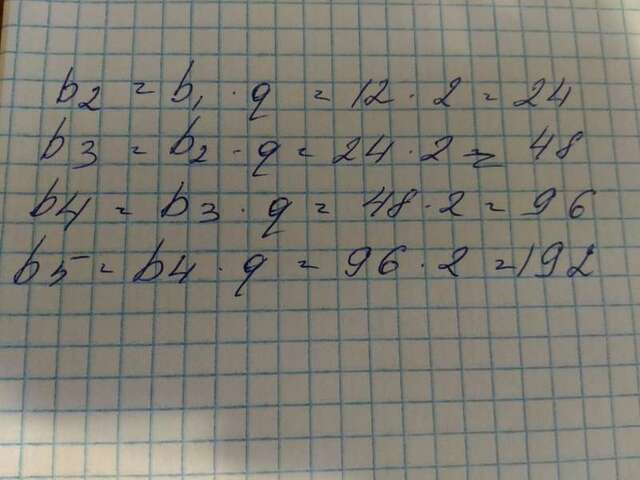 b2 = b1 · q = 12 · 2 = 24
b3 = b2 · q = 24 · 2 = 48
b4 = b3 · q = 48 · 2 = 96
b5 = b4 · q = 96 · 2 = 192